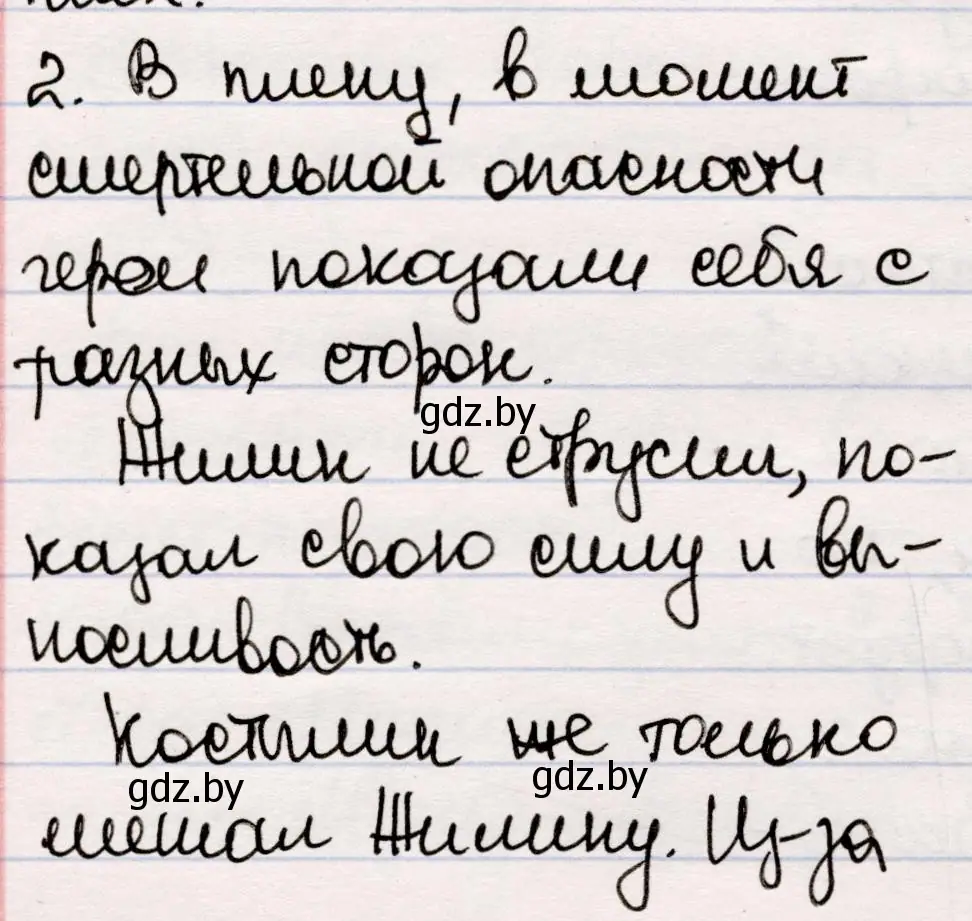 2. В плену, в момент
смертельной опасности
герои показали себя с
разных сторон.
gdz.by
Жилин не струсил, по-
казал свою силу и вы-
носливость.
Костылин же только
gdz.by gdz.by
мешал Жилину. Из-за